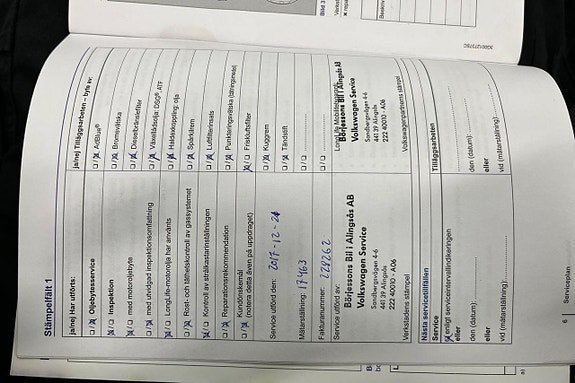 Stämpelfält 1
ja/nej Har utförts:
Oljebytesservice
Inspektion
med motoroljebyte
med utvidgad inspektionsomfattning
LongLife-motorolja har använts
Rost- och täthetskontroll av gassystemet
Kontroll av strålkastarinställningen
Reparationsrekommendation
Kundönskemål
(notera detta även på uppdraget)
Service utförd den: 2017-12-21
Mätarställning: 17463
Fakturanummer: 228262
Service utförd av:
Börjessons Bil i Alingsås AB
Volkswagen Service
Sandbergsvägen 4-6
441 39 Alingsås
222 40010 - A06
Verkstadens stämpel
ja/nej Tilläggsarbeten – byte av:
AdBlue®
Bromsvätska
Dieselbränslefilter
Växellådsolja DSG®, ATF
Haldexkoppling: olja
Spårkären
Luftfilterinsats
Punkteringsvätska (tätningsmedel)
Friskluftsfilter
Kuggrem
Tändstift
LongLife Mobilitetsgaranti
Börjessons Bil i Alingsås AB
Volkswagen Service
Sandbergsvägen 4-6
441 39 Alingsås
222 40010 - A06
Volkswagenpartnerns stämpel
Nästa servicetillfällen
Service
enligt serviceintervallindikeringen
eller
den (datum):
eller
vid (mätarställning):
Tilläggsarbeten
den (datum):
eller
vid (mätarställning):
6 Serviceplan